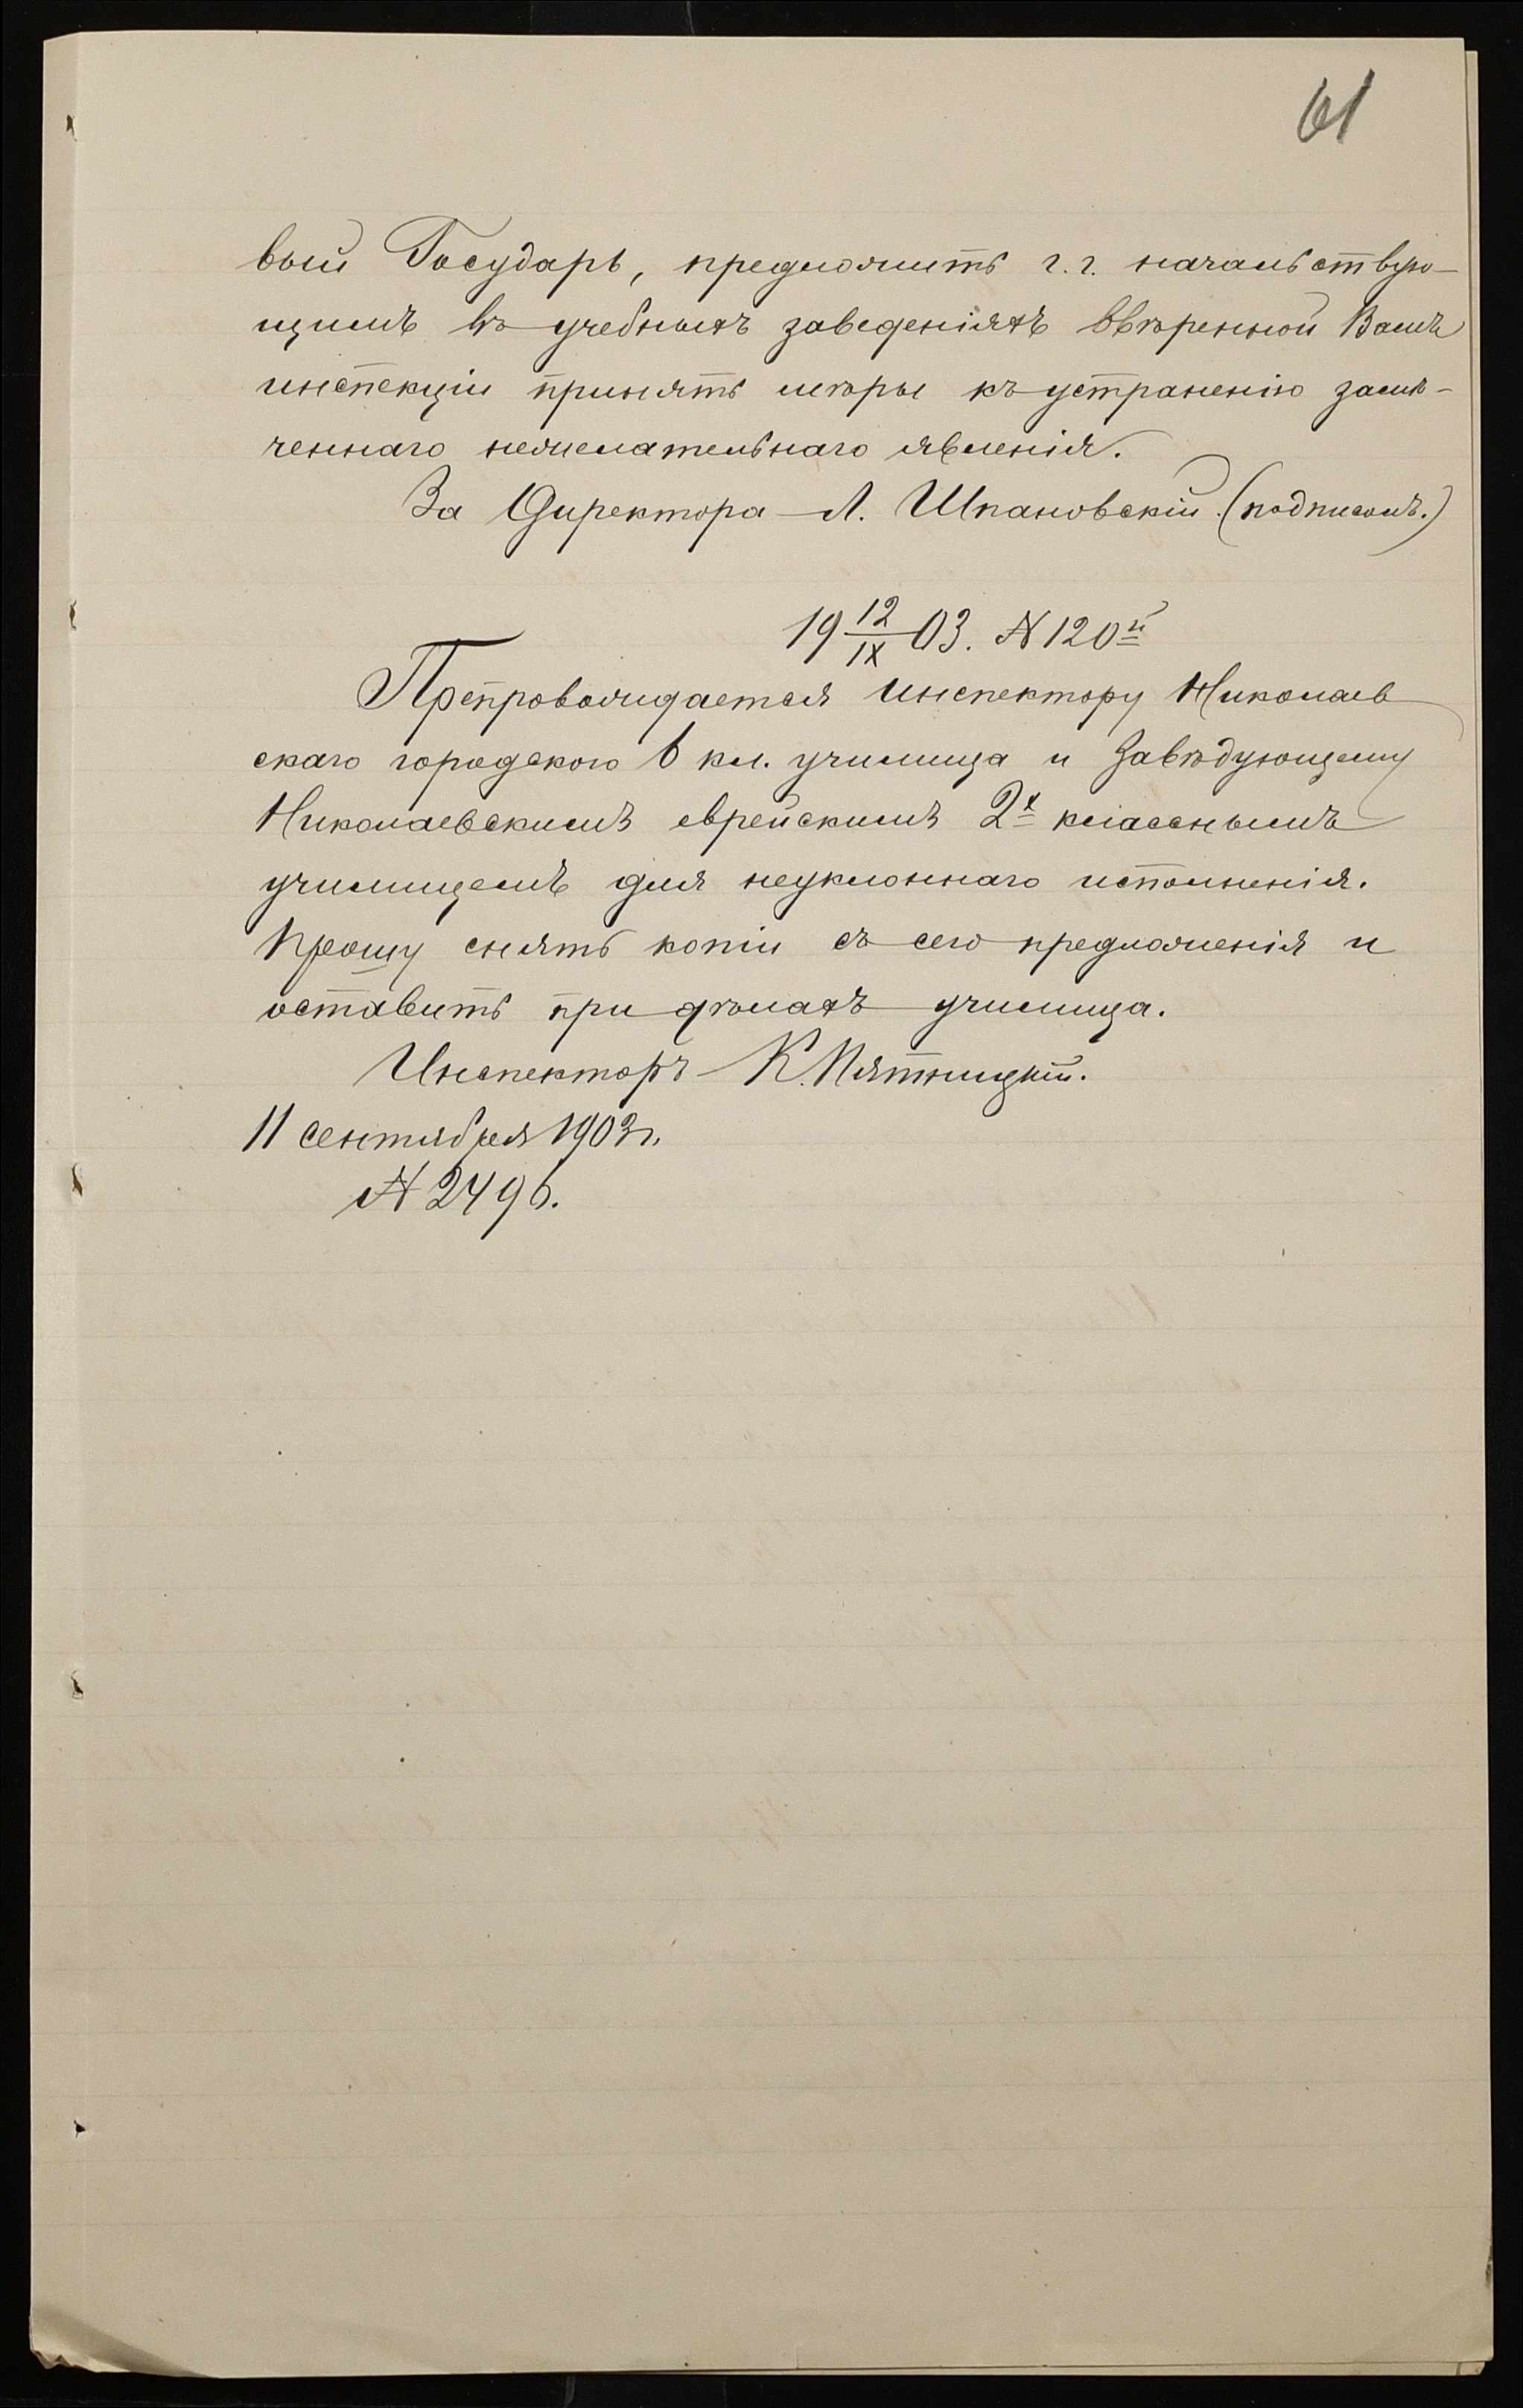 61
вый Государь, предложить г.г. начальствую-
щимъ въ учебныхъ заведеніяхъ ввѣренной Вамъ
инспекціи принять мѣры къ устраненію замѣ-
ченнаго нежелательнаго явленія.
За Директора Л. Шпановскій. (подписалъ.)
19 12/IX 03. № 120й
Препровождается Инспектору Николаев
скаго городского 6 кл. училища и Завѣдующему
Николаевскимъ еврейскимъ 2х класснымъ
училищемъ для неуклоннаго исполненія.
Прошу снять копіи съ сего предложенія и
оставить при дѣлахъ училища.
Инспекторъ К. Пятницкій.
11 сентября 1903 г.
№ 2496.